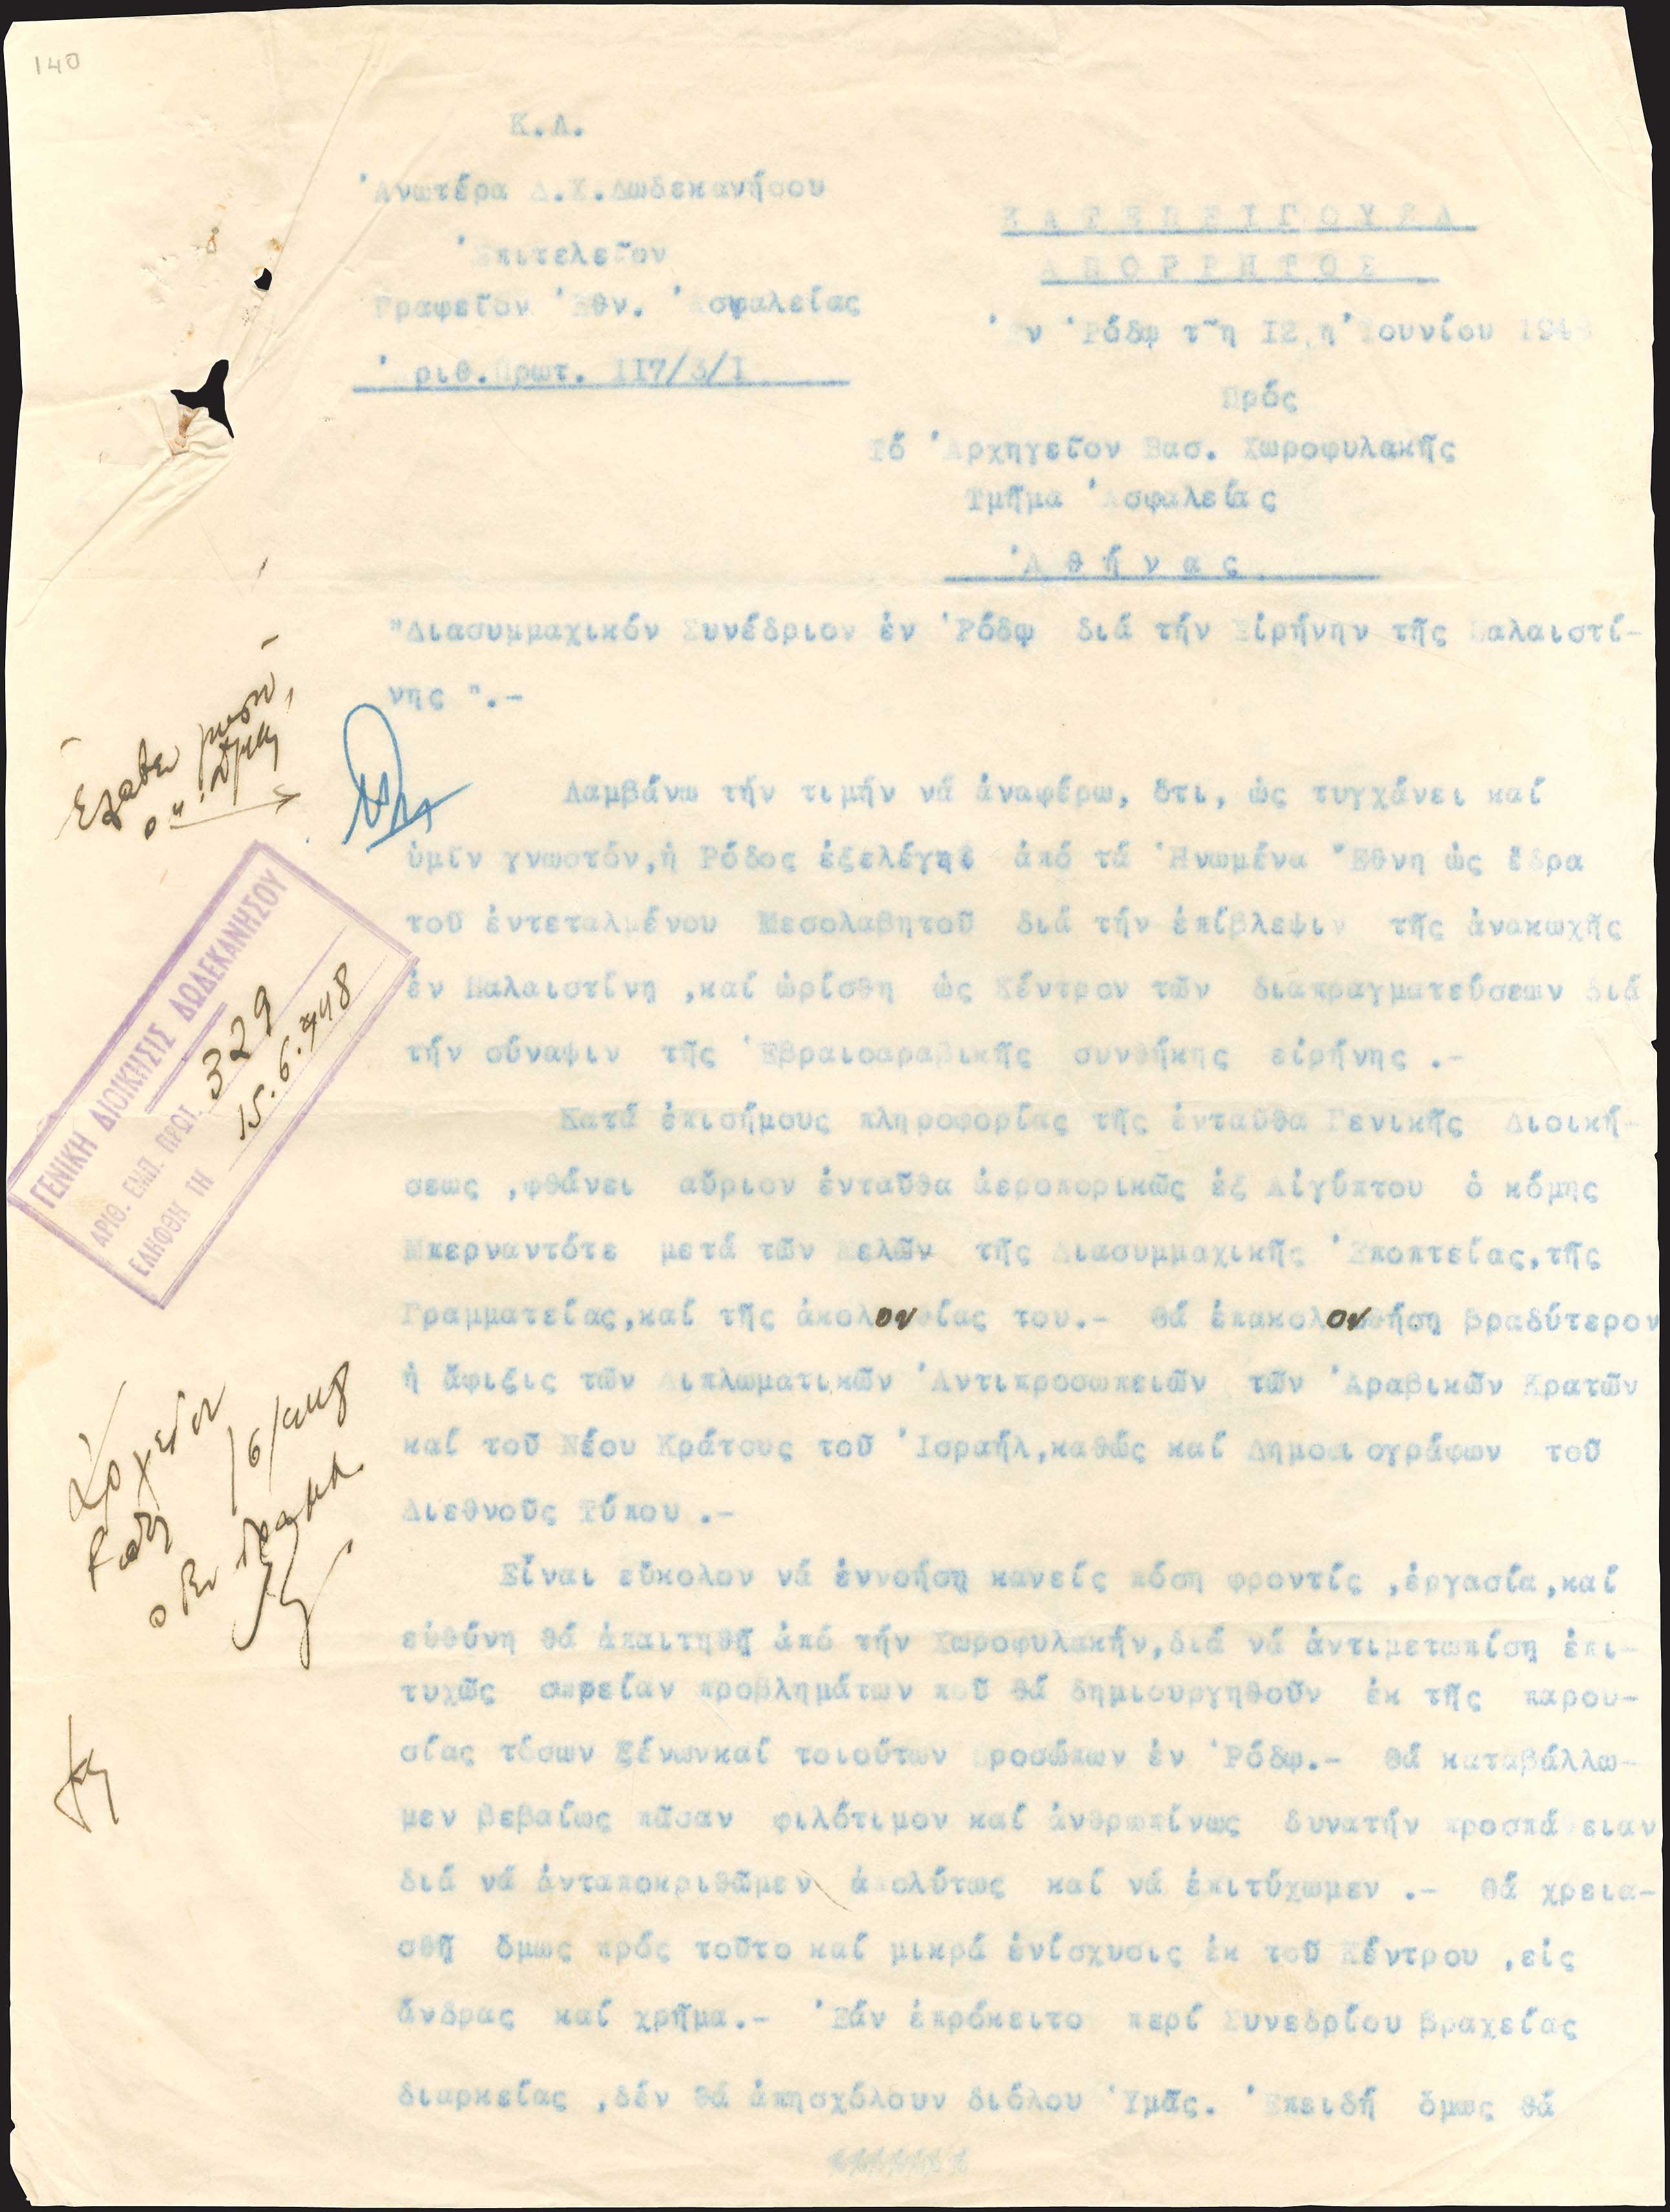 140
Κ.Δ.
Ἀνωτέρα Δ.Χ.Δωδεκανήσου
Ἐπιτελεῖον
Γραφεῖον Ἐθν. Ἀσφαλείας
Ἀριθ.Πρωτ. 117/3/1
ΚΑΤΕΠΕΙΓΟΥΣΑ
ΑΠΟΡΡΗΤΟΣ
Ἐν Ῥόδῳ τῆ 12 η Ἰουνίου 1948
Πρός
Τό Ἀρχηγεῖον Βασ. Χωροφυλακῆς
Τμῆμα Ἀσφαλείας
Ἀ θ ή ν α ς
"Διασυμμαχικόν Συνέδριον ἐν Ῥόδῳ διά τήν Εἰρήνην τῆς Παλαιστί-
νης ".-
Λαμβάνω τήν τιμήν νά ἀναφέρω, ὅτι, ὡς τυγχάνει καί
ὑμῖν γνωστόν,ἡ Ρόδος ἐξελέγη ἀπό τά Ἡνωμένα Ἔθνη ὡς ἕδρα
τοῦ ἐντεταλμένου Μεσολαβητοῦ διά τήν ἐπίβλεψιν τῆς ἀνακωχῆς
ἐν Παλαιστίνη ,καί ὡρίσθη ὡς Κέντρον τῶν διαπραγματεύσεων διά
τήν σύναψιν τῆς Ἑβραιοαραβικῆς συνθήκης εἰρήνης .-
Κατά ἐπισήμους πληροφορίας τῆς ἐνταῦθα Γενικῆς Διοική-
σεως ,φθάνει αὔριον ἐνταῦθα ἀεροπορικῶς ἐξ Αἰγύπτου ὁ κόμης
Μπερναντότε μετά τῶν Μελῶν τῆς Διασυμμαχικῆς Ἐποπτείας,τῆς
Γραμματείας,καί τῆς ἀκολουθίας του.- Θά ἐπακολουθήση βραδύτερον
ἡ ἄφιξις τῶν Διπλωματικῶν Ἀντιπροσωπειῶν τῶν Ἀραβικῶν Κρατῶν
καί τοῦ Νέου Κράτους τοῦ Ἰσραήλ,καθώς καί Δημοσιογράφων τοῦ
Διεθνοῦς Τύπου .-
Εἶναι εὔκολον νά ἐννοήση κανείς πόση φροντίς ,ἐργασία,καί
εὐθύνη θά ἀπαιτηθῆ ἀπό τήν Χωροφυλακήν,διά νά ἀντιμετωπίση ἐπι-
τυχῶς σωρείαν προβλημάτων ποῦ θά δημιουργηθοῦν ἐκ τῆς παρου-
σίας τόσων ξένωνκαί τοιούτων Προσώπων ἐν Ῥόδῳ.- Θά καταβάλλω-
μεν βεβαίως πᾶσαν φιλότιμον καί ἀνθρωπίνως δυνατήν προσπάθειαν
διά νά ἀνταποκριθῶμεν ἀπολύτως καί νά ἐπιτύχωμεν .- Θά χρεια-
σθῆ ὅμως πρός τοῦτο καί μικρά ἐνίσχυσις ἐκ τοῦ Κέντρου ,εἰς
ἄνδρας καί χρῆμα.- Ἐάν ἐπρόκειτο περί Συνεδρίου βραχείας
διαρκείας ,δέν θά ἀπησχόλουν διόλου Ὑμᾶς. Ἐπειδή ὅμως θά
ΓΕΝΙΚΗ ΔΙΟΙΚΗΣΙΣ ΔΩΔΕΚΑΝΗΣΟΥ
ΑΡΙΘ. ΕΜΠ. ΠΡΩΤ. 329
ΕΛΗΦΘΗ ΤΗ 15.6.948
Ἀρχεῖον